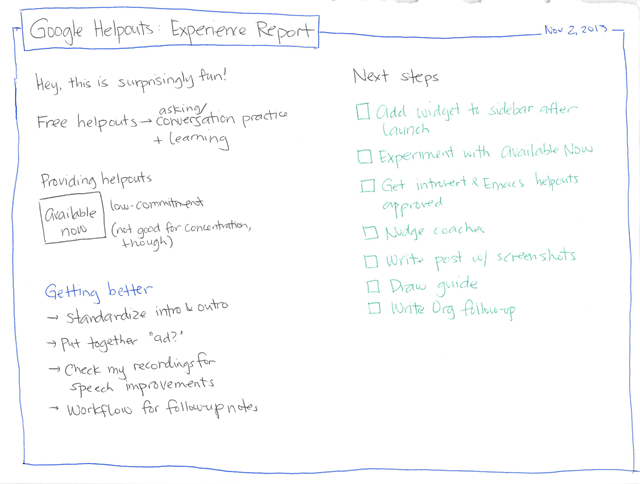 Google Helpouts: Experience Report
Nov 2, 2013
Hey, this is surprisingly fun!
Free helpouts → asking/
conversation practice
+ learning
Providing helpouts
Available
now
low-commitment
(not good for concentration,
though)
Getting better
→ Standardize intro & outro
→ Put together "ad?"
→ Check my recordings for
speech improvements
→ Workflow for follow-up notes
Next steps
Add widget to sidebar after
launch
Experiment with Available Now
Get introvert & Emacs helpouts
approved
Nudge coaches
Write post w/ screenshots
Draw guide
Write Org follow-up